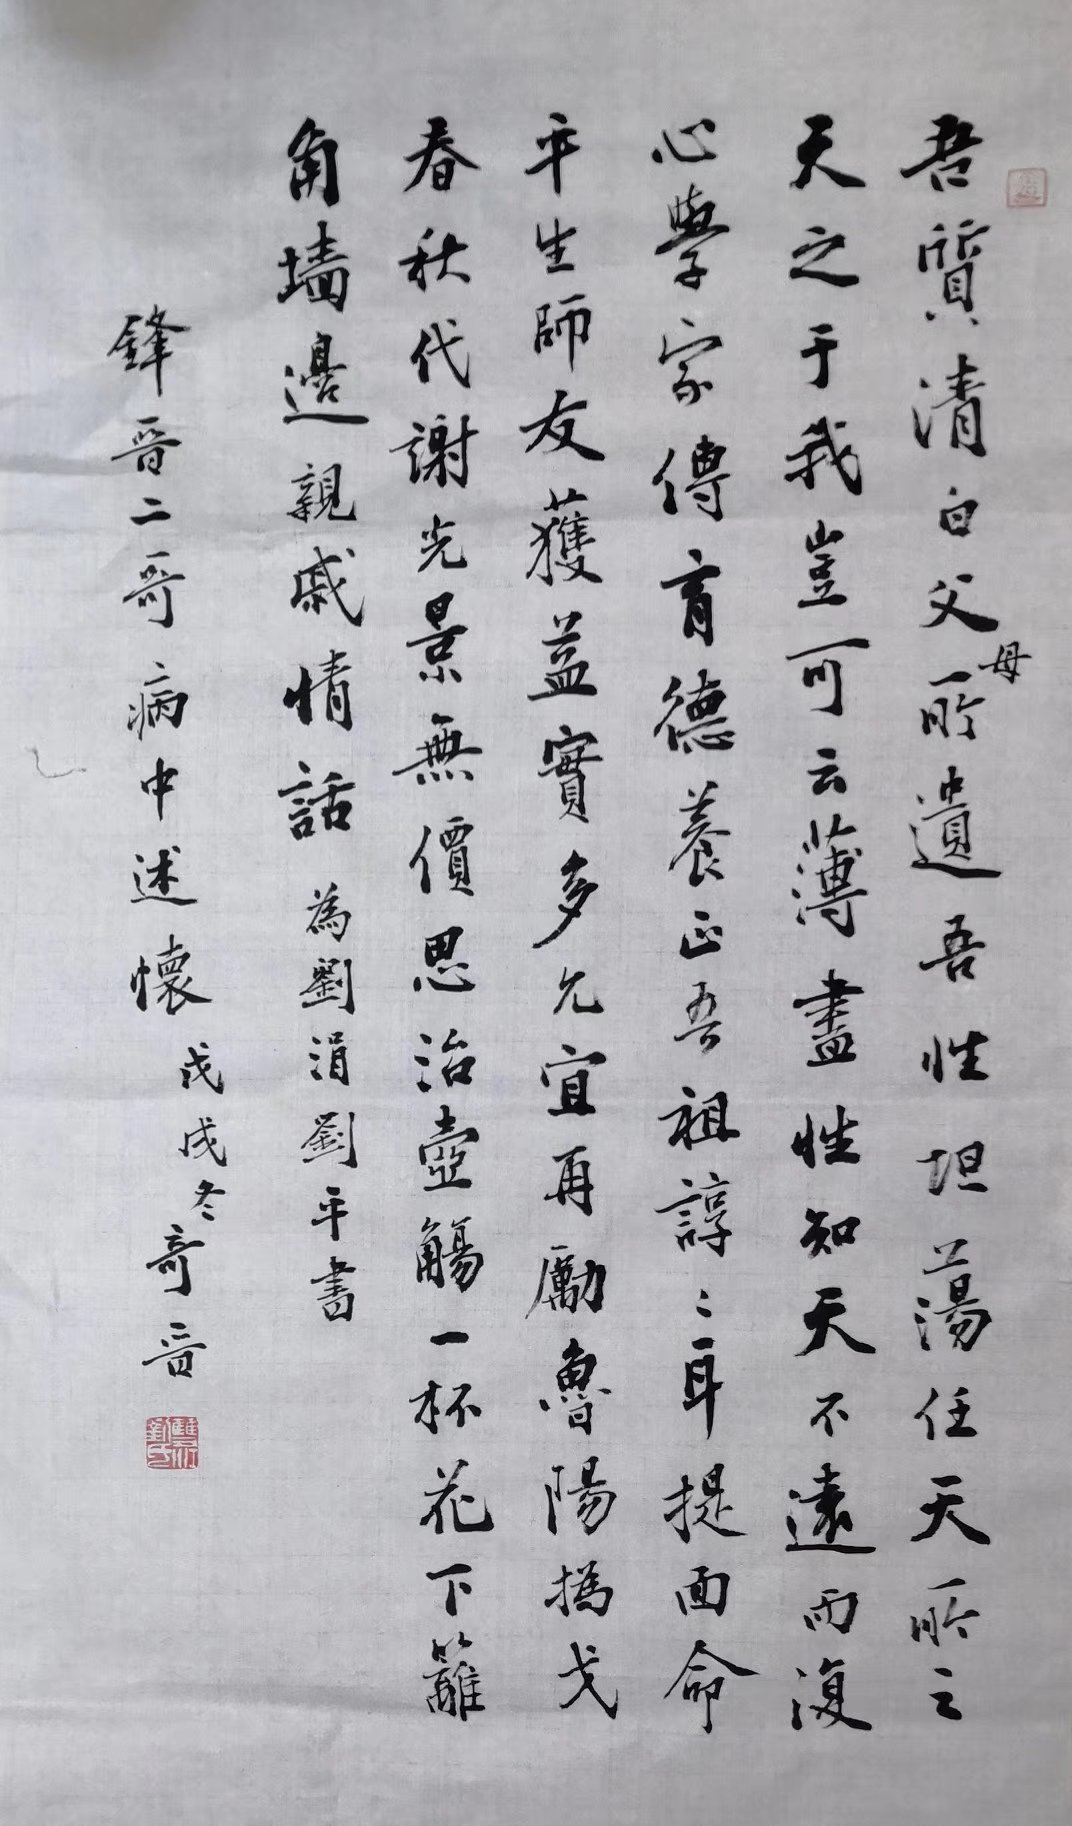 吾質清白父母所遺吾性坦蕩任天所之
天之于我豈可云薄盡性知天不遠而復
心學家傳育德養正吾祖諄〻耳提面命
平生師友獲益實多尤宜再勵魯陽撝戈
春秋代謝光景無價思治壺觴一杯花下籬
角墙邊親戚情話 為劉涓劉平書
鋒晉二哥病中述懷 戊戌冬奇晉